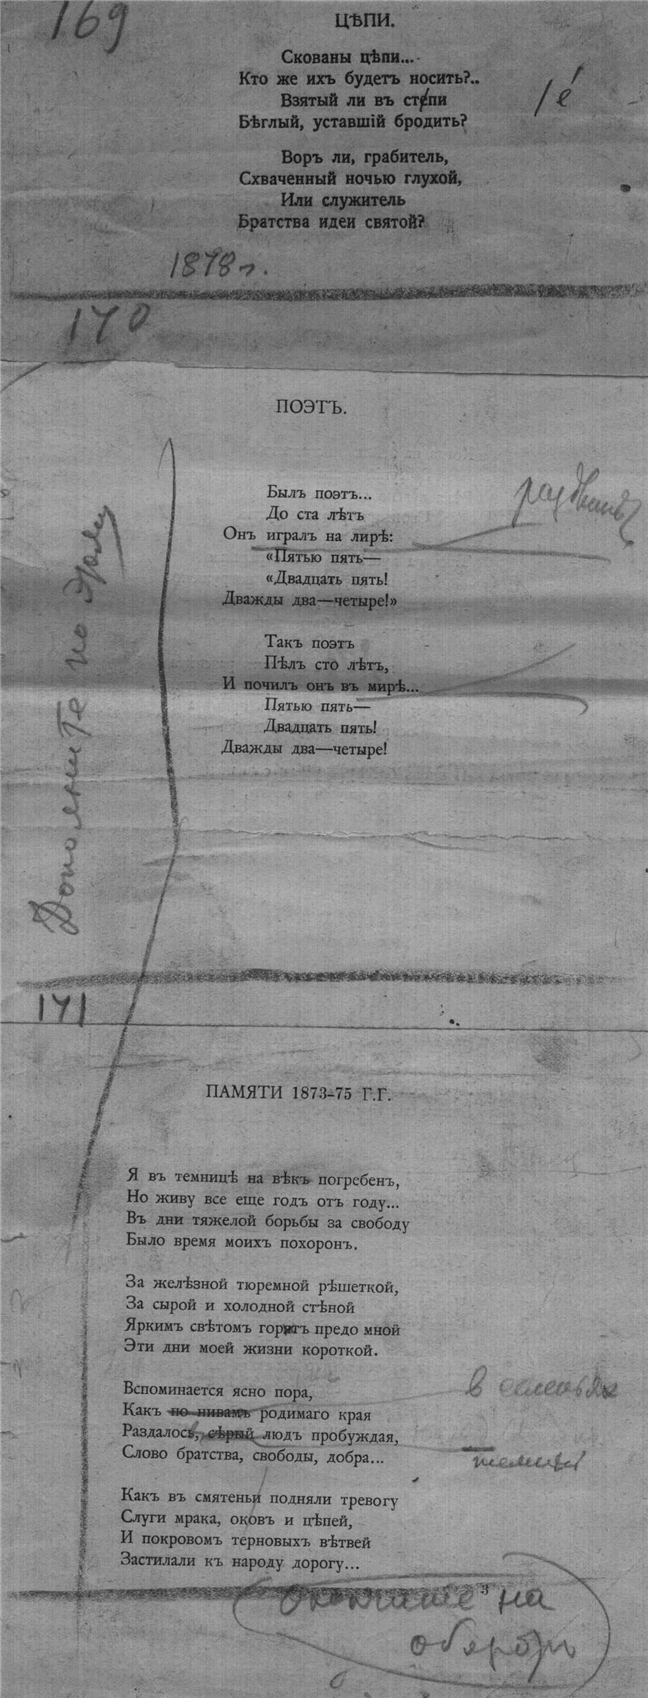 169
ЦѢПИ.
Скованы цѣпи...
Кто же ихъ будетъ носить?..
Взятый ли въ степи
Бѣглый, уставшій бродить?
/é
Воръ ли, грабитель,
Схваченный ночью глухой,
Или служитель
Братства идеи святой?
1878 г.
170
ПОЭТЪ.
Былъ поэтъ...
До ста лѣтъ
Онъ игралъ на лирѣ:
«Пятью пять—
«Двадцать пять!
Дважды два—четыре!»
Такъ поэтъ
Пѣлъ сто лѣтъ,
И почилъ онъ въ мирѣ...
Пятью пять—
Двадцать пять!
Дважды два—четыре!
171
ПАМЯТИ 1873-75 Г.Г.
Я въ темницѣ на вѣкъ погребенъ,
Но живу все еще годъ отъ году...
Въ дни тяжелой борьбы за свободу
Было время моихъ похоронъ.
За желѣзной тюремной рѣшеткой,
За сырой и холодной стѣной
Яркимъ свѣтомъ горятъ предо мной
Эти дни моей жизни короткой.
Вспоминается ясно пора,
Какъ по нивамъ родимаго края
Раздалось, сѣрый людъ пробуждая,
Слово братства, свободы, добра...
Какъ въ смятеньи подняли тревогу
Слуги мрака, оковъ и цѣпей,
И покровомъ терновыхъ вѣтвей
Застилали къ народу дорогу...
3
Окончаніе на
оборотѣ